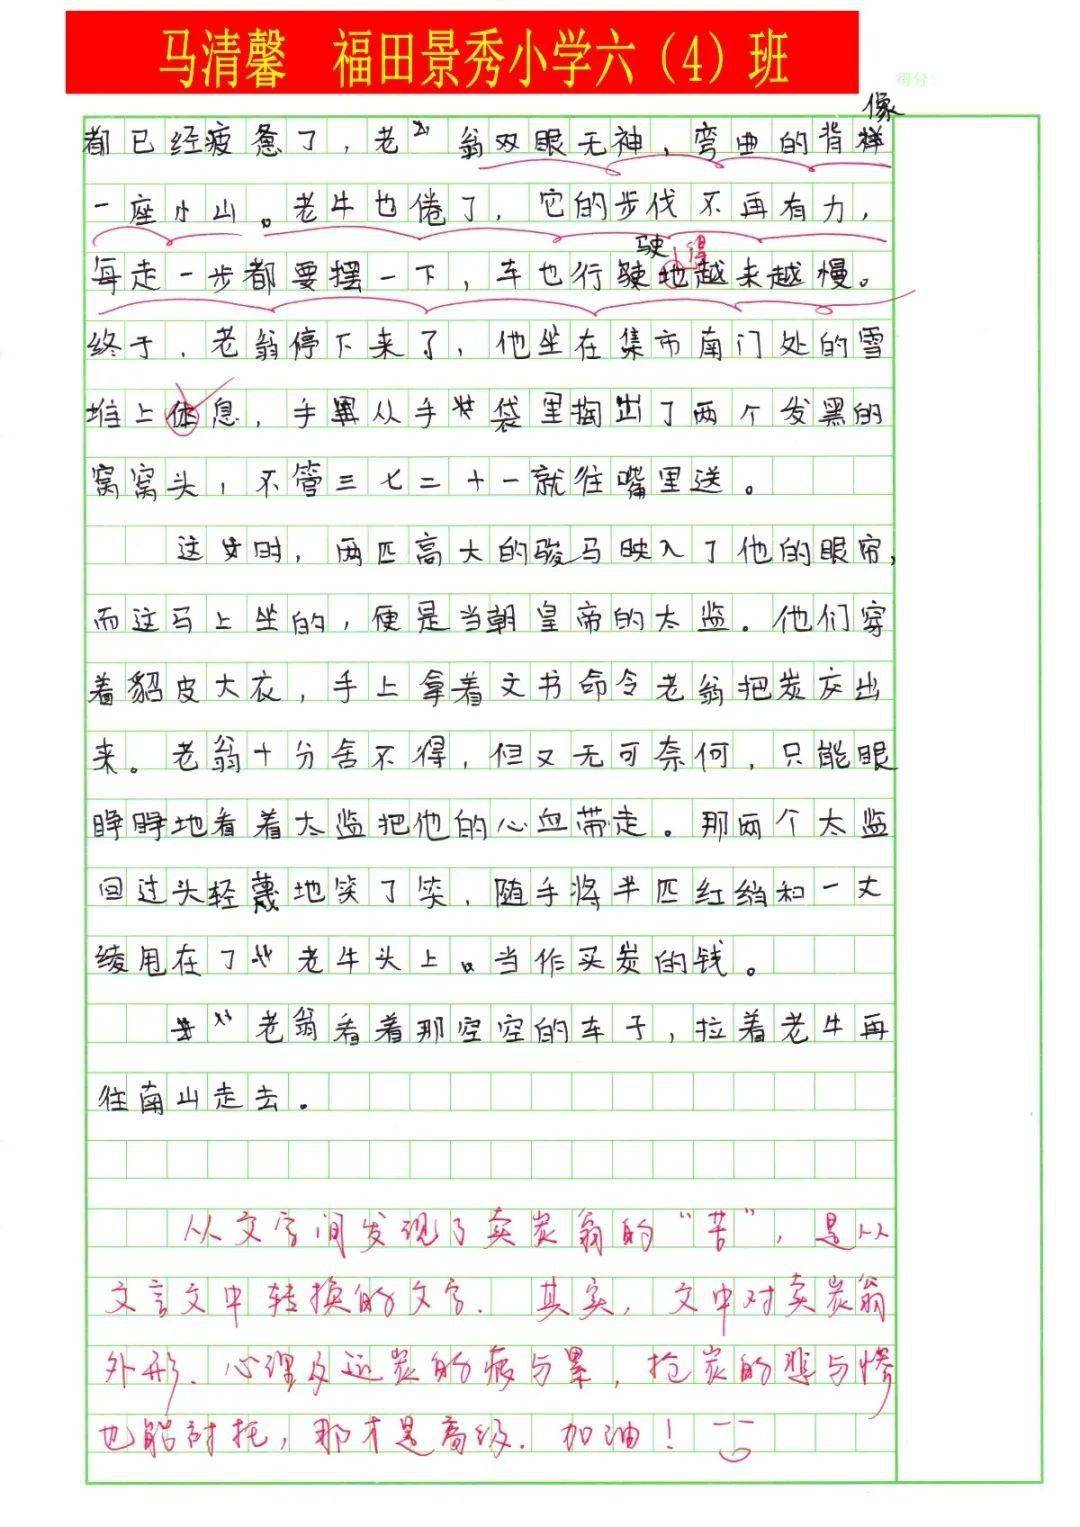 马清馨 福田景秀小学六（4）班
得分：
像
都已经疲惫了，老翁双眼无神，弯曲的背样
一座小山。老牛也倦了，它的步伐不再有力，
驶 得
每走一步都要摆一下，车也行驶地越来越慢。
终于，老翁停下来了，他坐在集市南门处的雪
堆上休息，手里从手袋里掏出了两个发黑的
窝窝头，不管三七二十一就往嘴里送。
这时，两匹高大的骏马映入了他的眼帘，
而这马上坐的，便是当朝皇帝的太监。他们穿
着貂皮大衣，手上拿着文书命令老翁把炭交出
来。老翁十分舍不得，但又无可奈何，只能眼
睁睁地看着太监把他的心血带走。那两个太监
回过头轻蔑地笑了笑，随手将半匹红绡和一丈
绫甩在了老牛头上。当作买炭的钱。
老翁看着那空空的车子，拉着老牛再
往南山走去。
从文字间发现了卖炭翁的“苦”，是从
文言文中转换的文字．其实，文中对卖炭翁
外形、心理及运炭的疲与累，抢炭的悲与惨
也能衬托，那才是高级．加油！